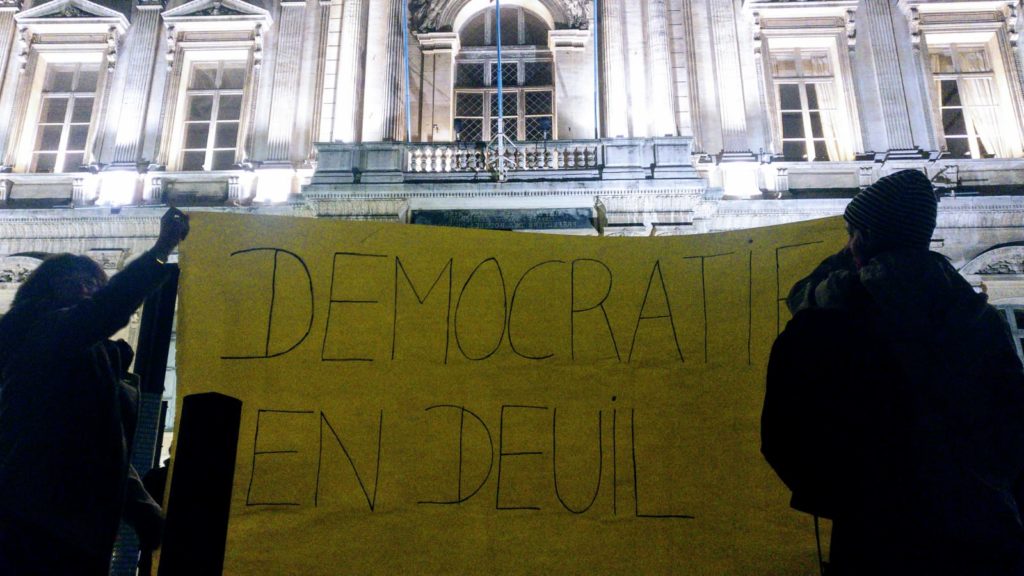 DÉMOCRATIE
EN DEUiL